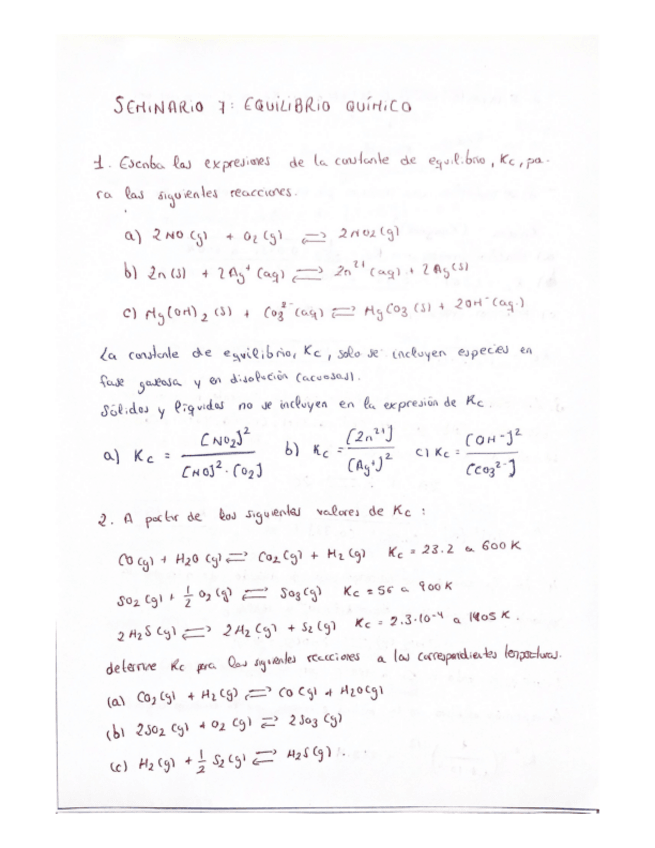 SEMINARIO 7: EQUILIBRIO QUÍMICO
1. Escriba las expresiones de la constante de equilibrio, Kc, pa-
ra las siguientes reacciones.
a) 2 NO (g) + O2 (g) ⇌ 2 NO2 (g)
b) Zn (s) + 2 Ag⁺ (aq) ⇌ Zn²⁺ (aq) + 2 Ag (s)
c) Mg(OH)2 (s) + CO3²⁻ (aq) ⇌ MgCO3 (s) + 2OH⁻ (aq.)
La constante de equilibrio, Kc, solo se incluyen especies en
fase gaseosa y en disolución (acuosas).
Sólidos y líquidos no se incluyen en la expresión de Kc.
a) Kc = [NO2]² / [NO]² · [O2] b) Kc = [Zn²⁺] / [Ag⁺]² c) Kc = [OH⁻]² / [CO3²⁻]
2. A partir de los siguientes valores de Kc :
CO (g) + H2O (g) ⇌ CO2 (g) + H2 (g) Kc = 23.2 a 600 K
SO2 (g) + 1/2 O2 (g) ⇌ SO3 (g) Kc = 56 a 900 K
2 H2S (g) ⇌ 2 H2 (g) + S2 (g) Kc = 2.3·10⁻⁴ a 1405 K.
determine Kc para las siguientes reacciones a las correspondientes temperaturas.
(a) CO2 (g) + H2 (g) ⇌ CO (g) + H2O (g)
(b) 2SO2 (g) + O2 (g) ⇌ 2SO3 (g)
(c) H2 (g) + 1/2 S2 (g) ⇌ H2S (g).